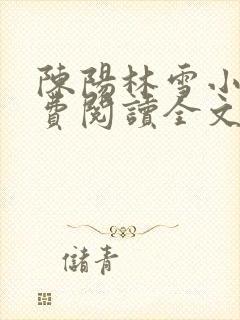 陳陽林雪小
費閱讀全文
儲青